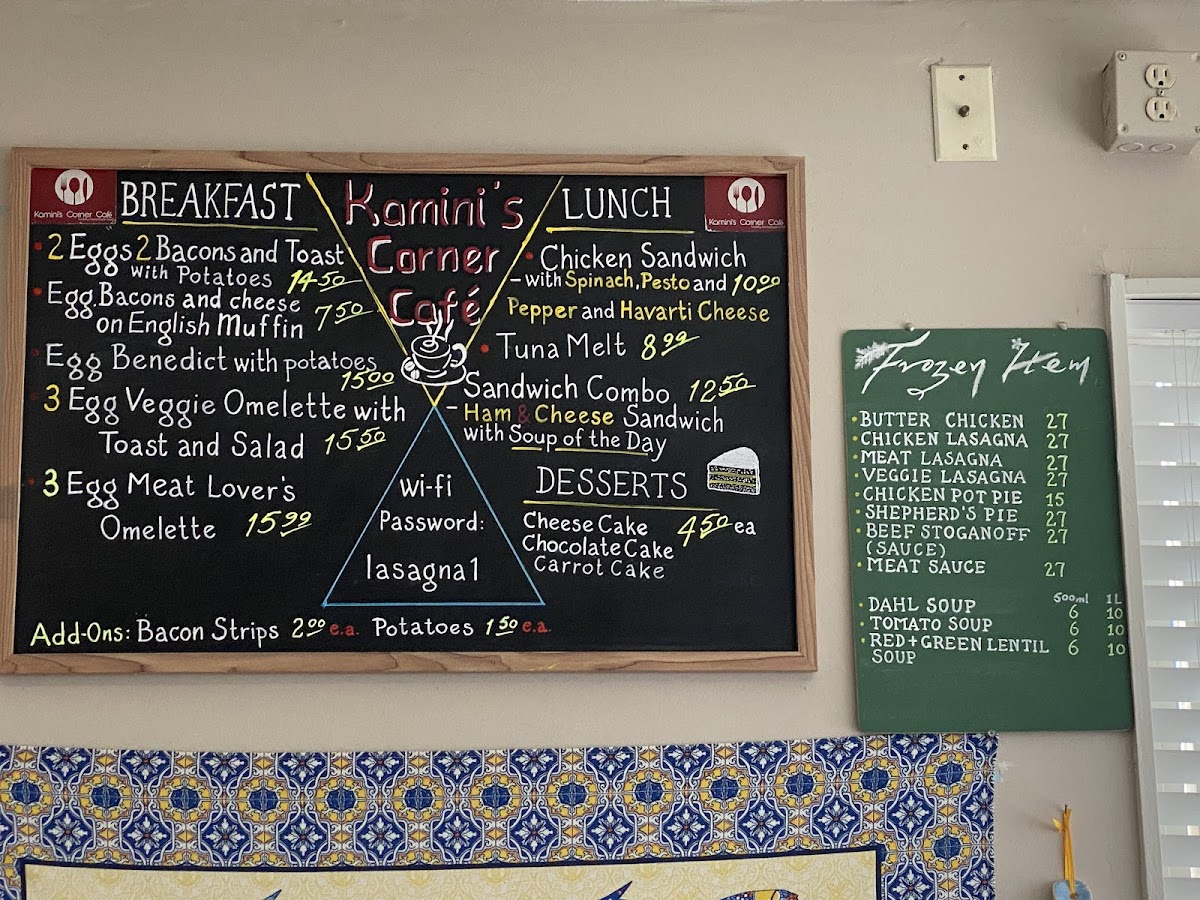 Kamini's Corner Café
BREAKFAST
2 Eggs 2 Bacons and Toast
with Potatoes 14.50
Egg, Bacons and cheese
on English Muffin 7.50
Egg Benedict with potatoes
15.00
3 Egg Veggie Omelette with
Toast and Salad 15.50
3 Egg Meat Lover's
Omelette 15.99
Add-Ons: Bacon Strips 2.00 e.a. Potatoes 1.50 e.a.
Kamini's
Corner
Café
wi-fi
Password:
lasagna1
LUNCH
Kamini's Corner Café
Chicken Sandwich
- with Spinach, Pesto and 10.00
Pepper and Havarti Cheese
Tuna Melt 8.99
Sandwich Combo 12.50
- Ham & Cheese Sandwich
with Soup of the Day
DESSERTS
Cheese Cake 4.50 ea
Chocolate Cake
Carrot Cake
Frozen Item
BUTTER CHICKEN 27
CHICKEN LASAGNA 27
MEAT LASAGNA 27
VEGGIE LASAGNA 27
CHICKEN POT PIE 15
SHEPHERD'S PIE 27
BEEF STOGANOFF 27
(SAUCE)
MEAT SAUCE 27
500ml 1L
DAHL SOUP 6 10
TOMATO SOUP 6 10
RED+GREEN LENTIL 6 10
SOUP